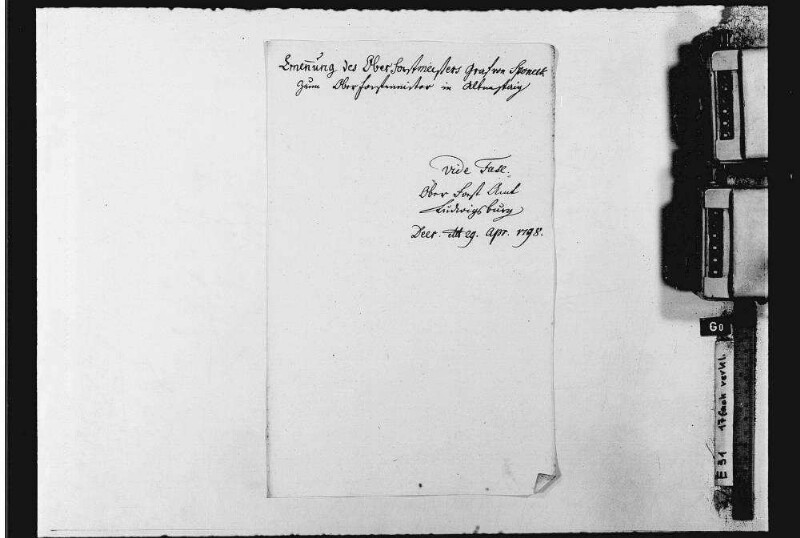 Ernennung des Oberforstmeisters Graf von Sponeck
zum Oberforstmeister in Altenstaig
vide Fasc.
Ober Forst Amt
Ludwigsburg
Decr. 29. Apr. 1798.
Go
E 31 17fach verkl.